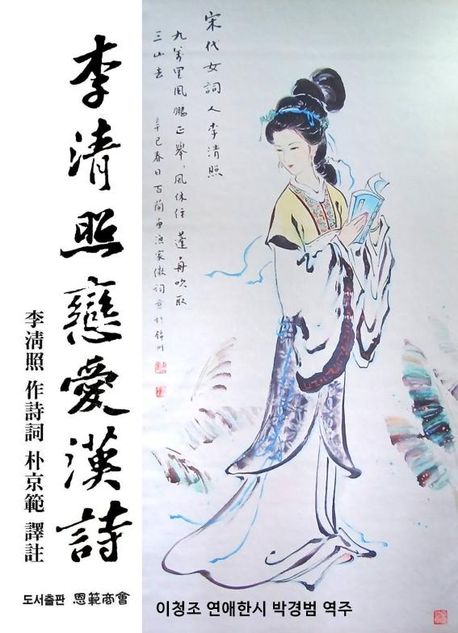 李清照戀愛漢詩
李淸照 作詩詞 朴京範 譯註
도서출판 恩範商會
宋代女詞人李清照
九萬里風鵬正舉。風休住 蓬舟吹取
三山去
辛巳春日百蘭畫漁家傲詞意於錦州
이청조 연애한시 박경범 역주